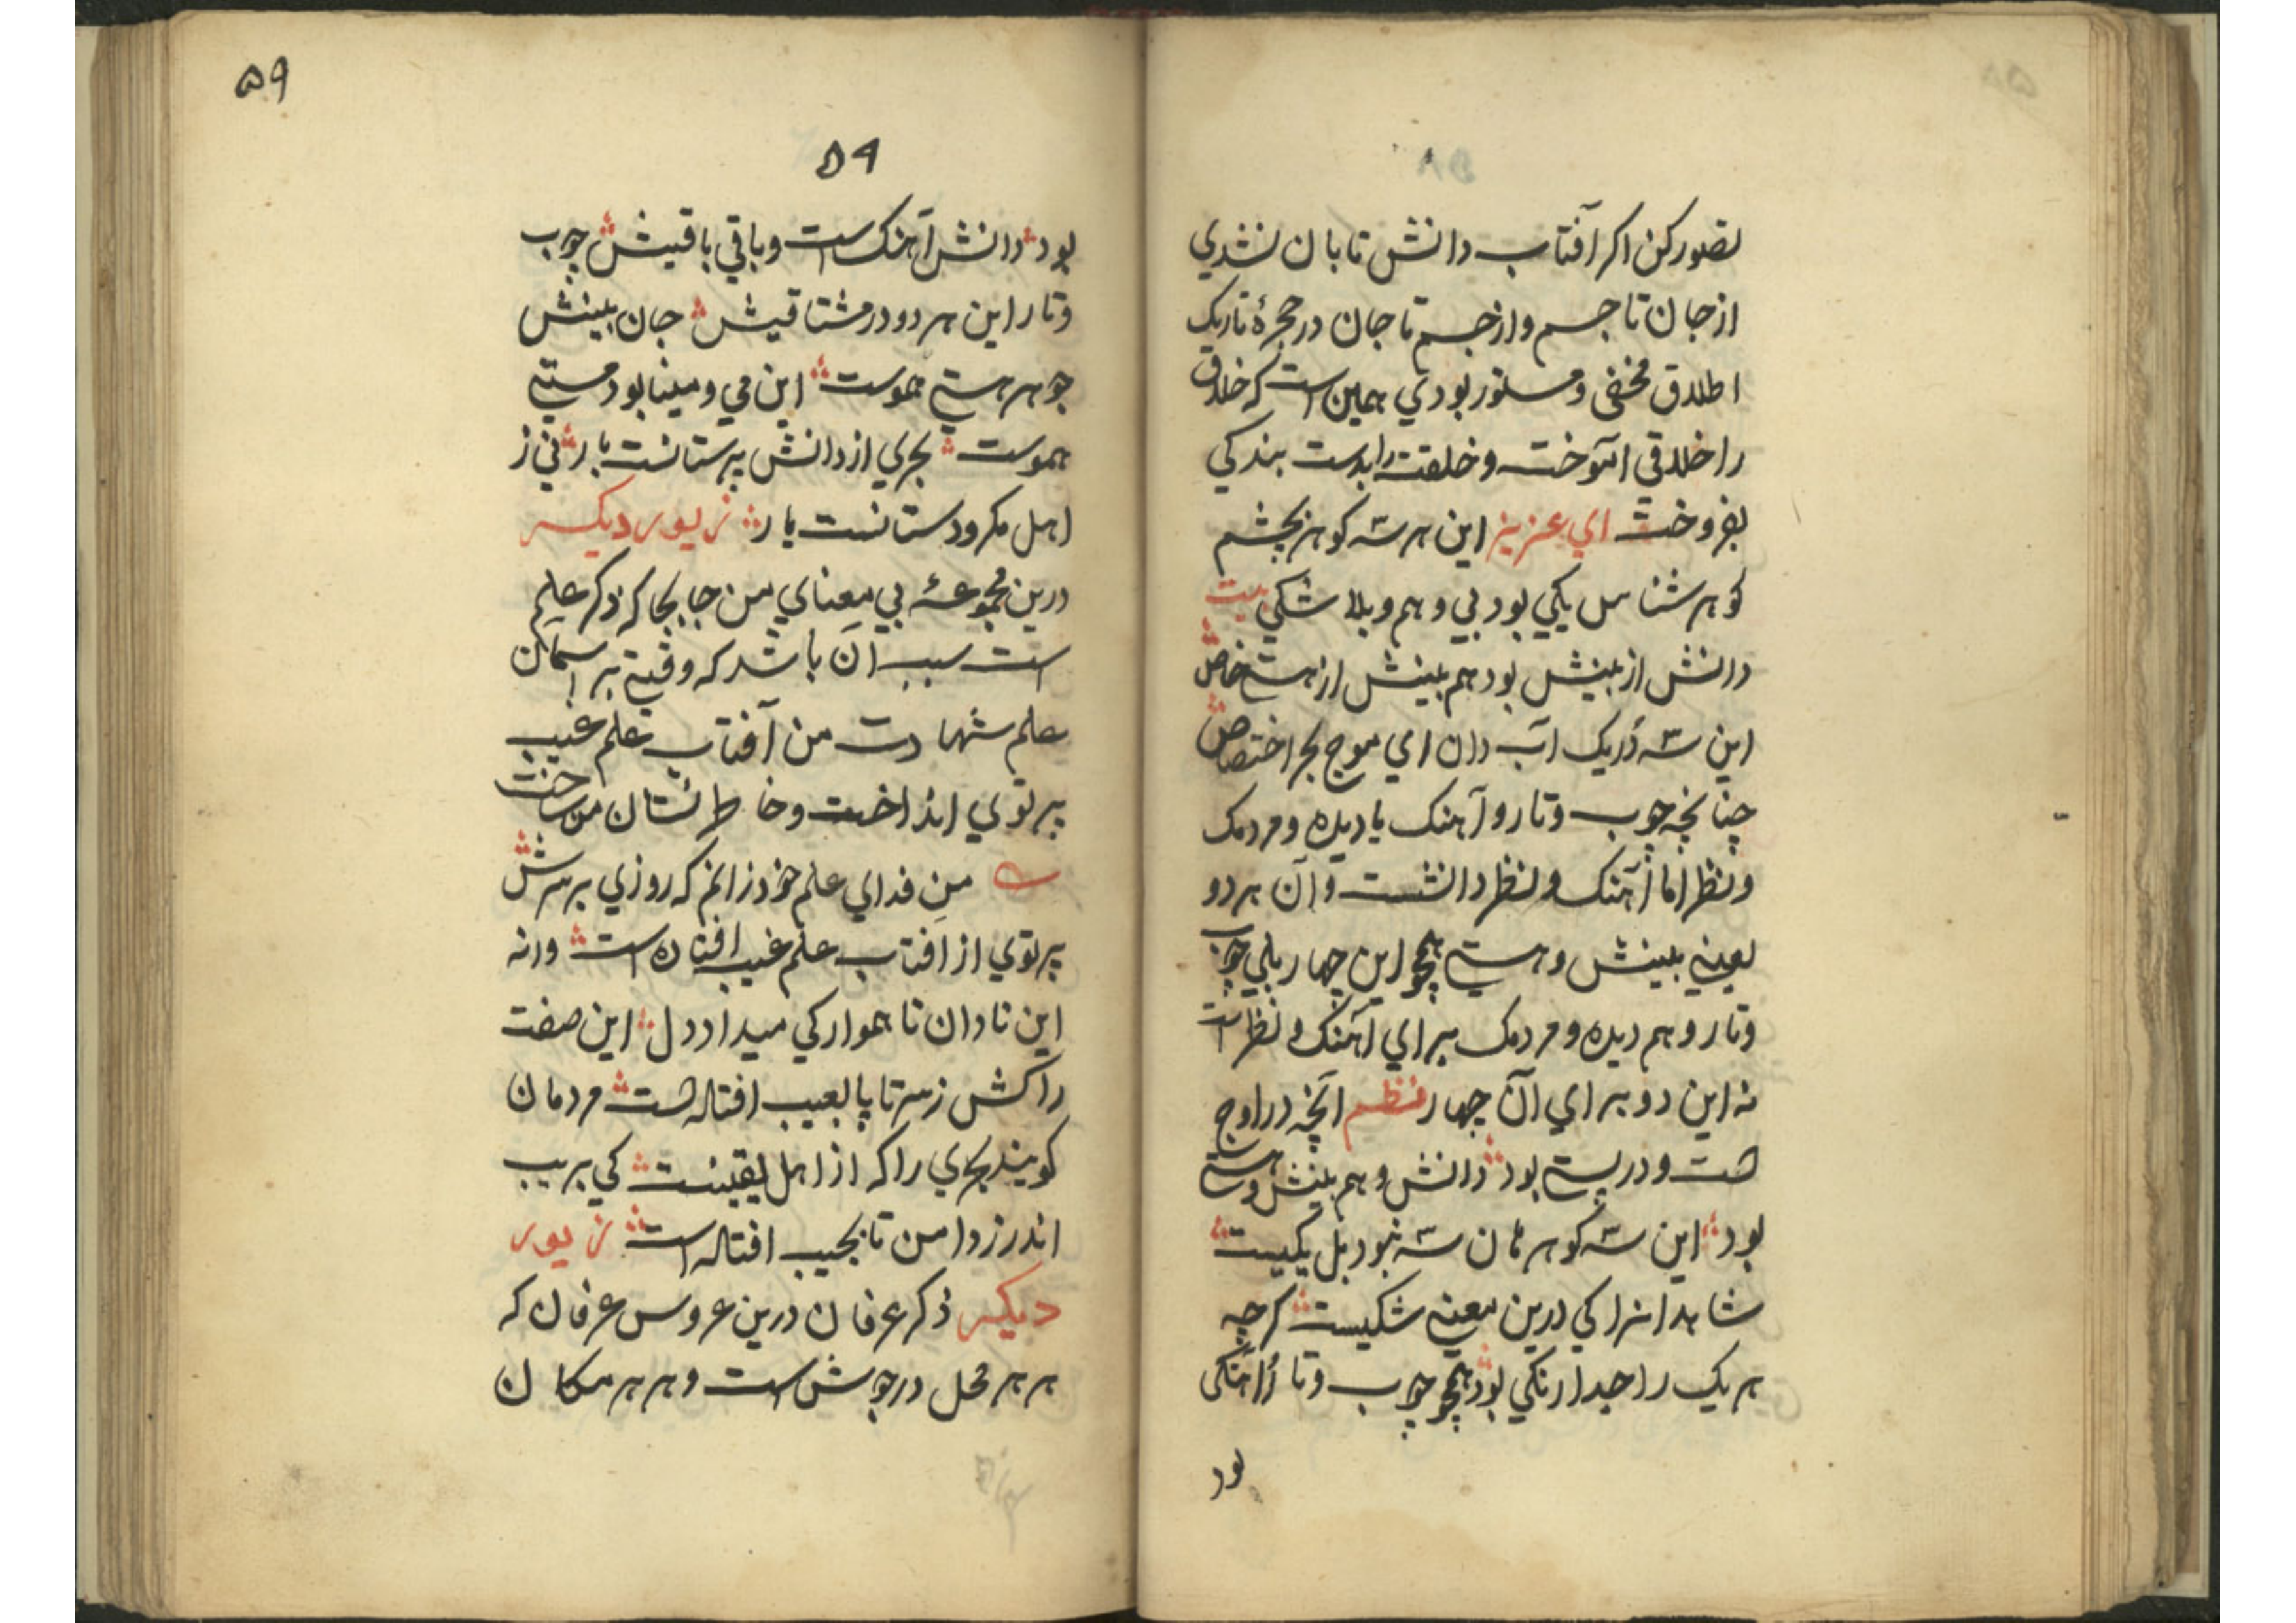 تصور کن اکر آفتاب دانش تابان نشدي
از جان تا جسم و از جسم تا جان در حجرهٔ تاریک
اطلاق مخفی و مستور بودي همین است که خلاق
را خلاقی آموخت و خلقت را بدست بندکي
بفروخت اي عزیز این هر سه کوهر بچشم
کوهر شناس یکي بود بي وهم و بلا شکي بیت
دانش از بینش بود هم بینش از هستي خاص
این سه دُر یک آب دان اي موج بحر اختصاص
چنانچه چوب و تار و آهنک یا دیده و مردمک
و نظر اما آهنک و نظر دانشست و آن هر دو
یعني بینش و هستي همچو این چهار بلي چوب
و تار و هم دیده و مردمک براي آهنک و نظر است
نه این دو براي آن چهار نظم آنچه در اوج
هست و در پستي بود دانش و هم بینش و هستي
بود این سه کوهر همان سه نبود بل یکیست
شاهدانرا کي درین معني شکیست کرچه
هر یک را جدا رنکي بود همچو چوب و تار آهنکی
بود
۵۹
۵۹
بود دانش آهنک است و باقي باقیش چوب
و تار این هر دو در مشتاقیش جان بینش
جوهر هستي هموست این مي و مینا بود مستي
هموست بحري از دانش پرستانست یار ني ز
اهل مکر و دستانست یار زیور دیکر
درین مجموعهٔ بي معناي من جابجا که ذکر علم
است سبب آن باشد که وقتي بر آسمان
علم شهادت من آفتاب علم غیب
پرتوي انداخت و خاطر نشان من ساخت
من فداي علم خود زانم که روزي بر سرش
پرتوي از آفتاب علم غیب افتاده است ورنه
این نادان ناهموار کي میداد دل این صفت
را کش ز سر تا پا بعیب افتاده است مردمان
کویند بحري را که از اهل یقینست کي بریب
اندر ز دامن تا بجیب افتاده است زیور
دیکر ذکر عرفان درین عروس عرفان که
هر هر محل در جوش است و هر هر مکان